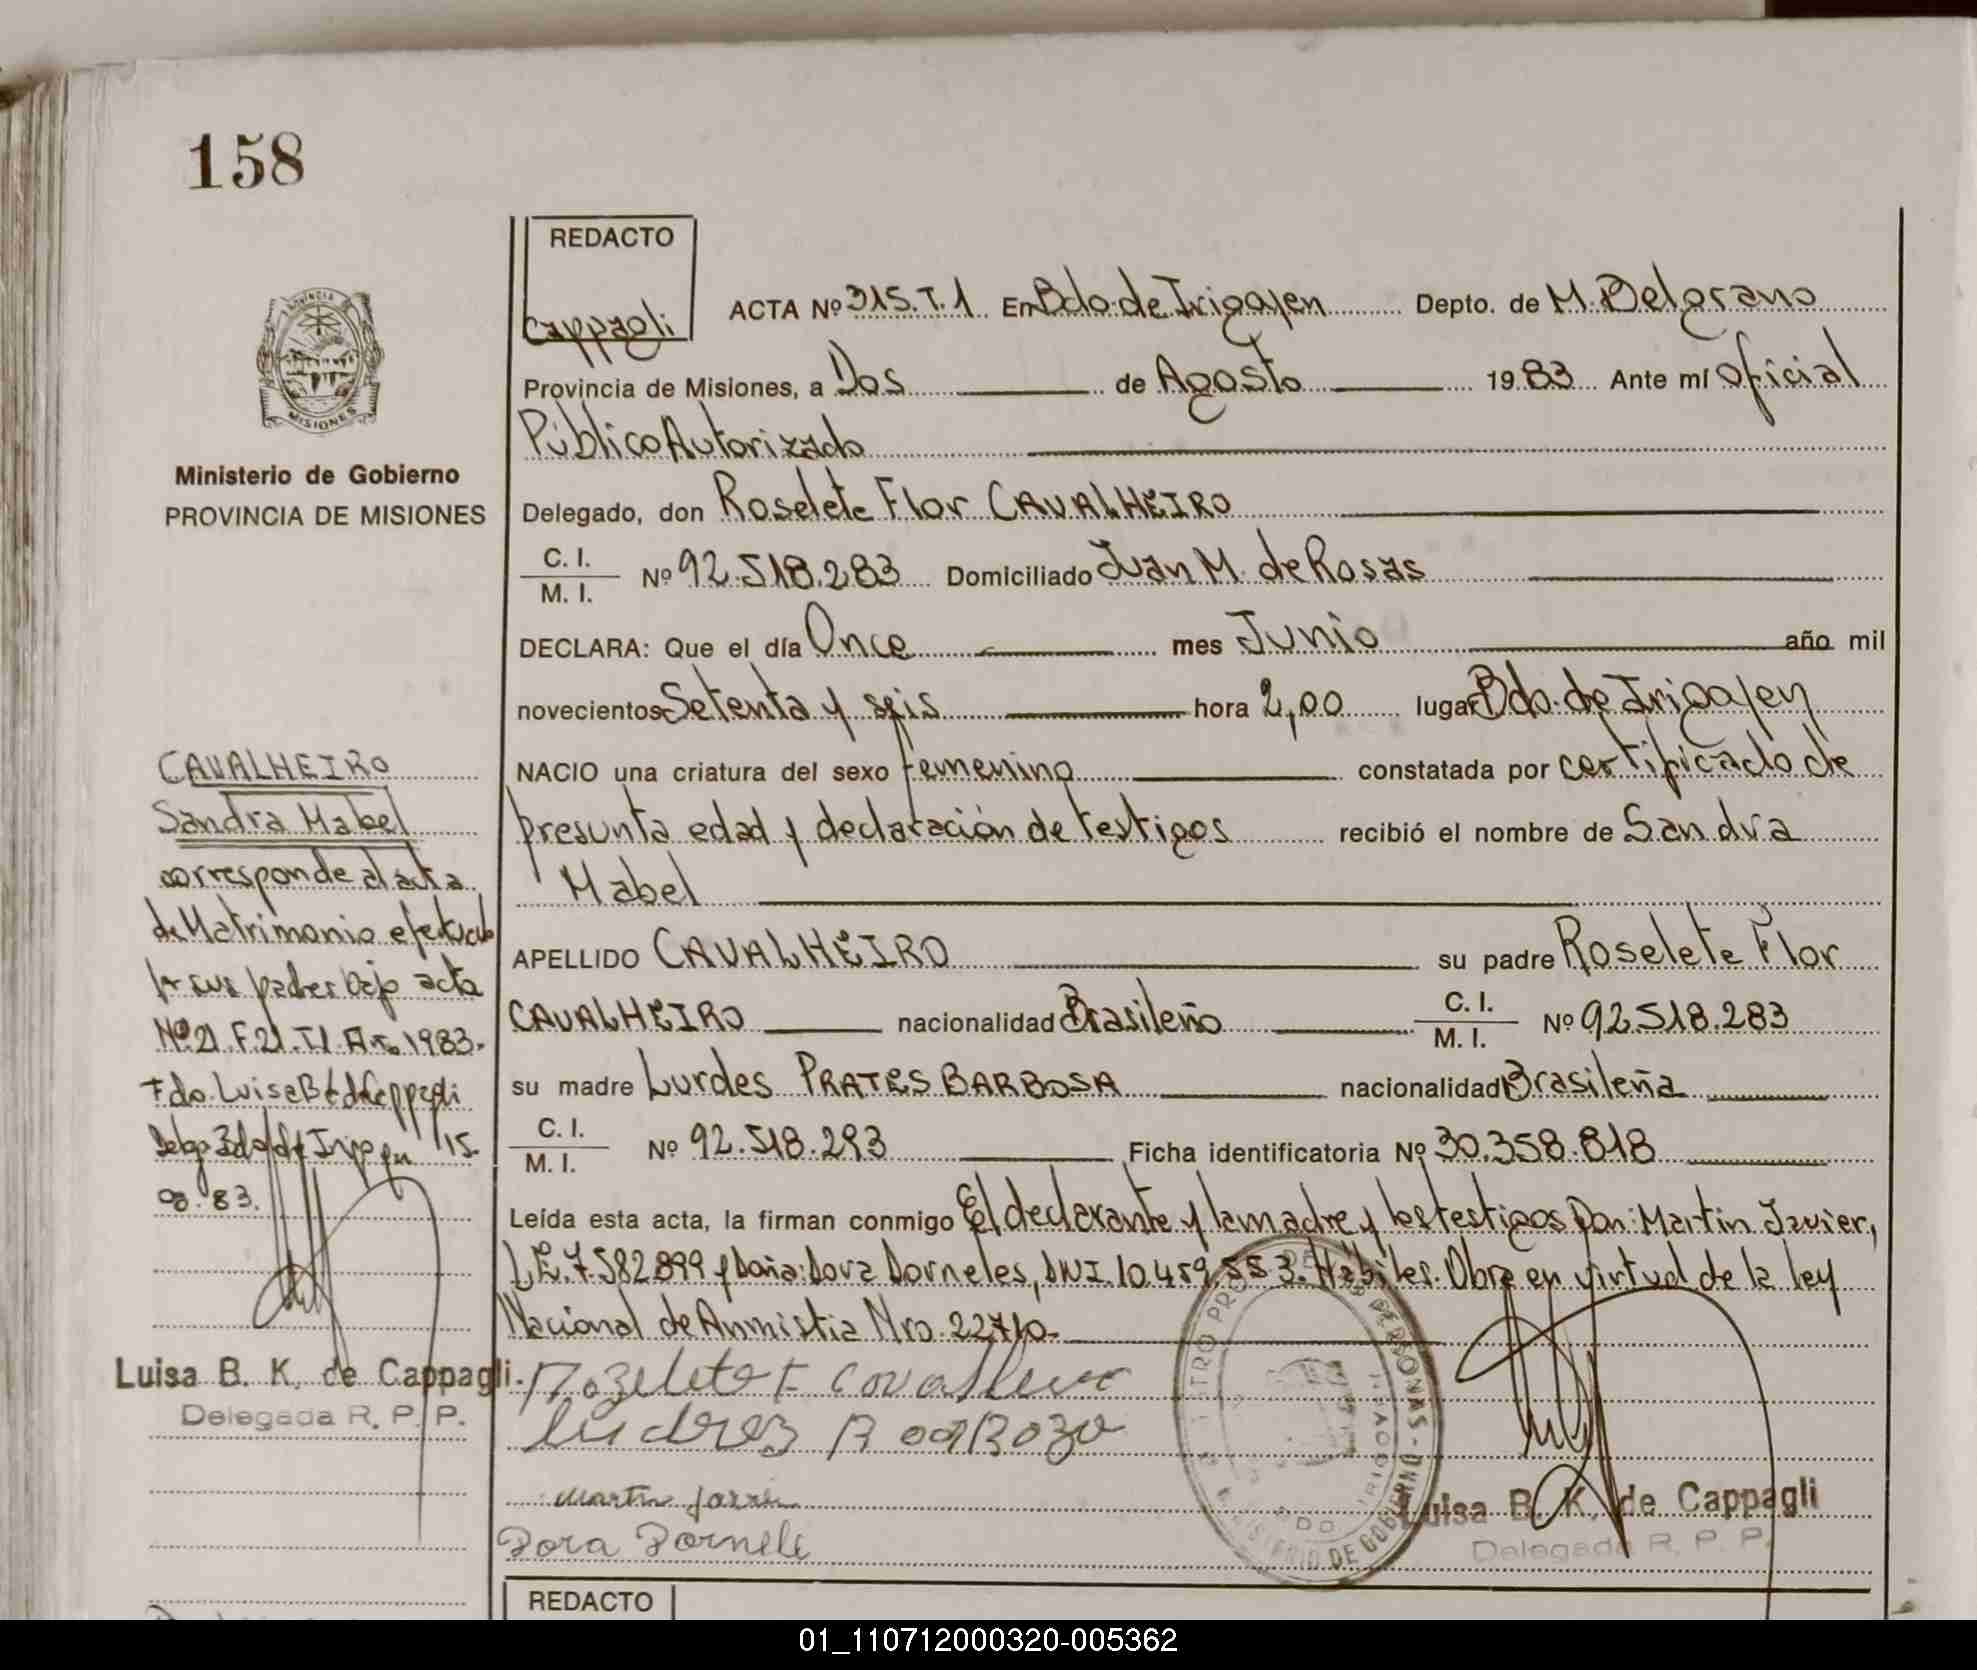 158
REDACTO
Cappagli
ACTA Nº 315.T.1 En Bdo. de Irigoyen Depto. de M. Belgrano
Provincia de Misiones, a Dos de Agosto 1983 Ante mí Oficial
Público Autorizado
Ministerio de Gobierno
PROVINCIA DE MISIONES
Delegado, don Roselete Flor CAVALHEIRO
C. I.
M. I. Nº 92.518.283 Domiciliado Juan M. de Rosas
DECLARA: Que el día Once mes Junio año mil
novecientos Setenta y seis hora 2,00 lugar Bdo. de Irigoyen
NACIO una criatura del sexo femenino constatada por certificado de
presunta edad y declaración de testigos recibió el nombre de Sandra
Mabel
APELLIDO CAVALHEIRO su padre Roselete Flor
CAVALHEIRO nacionalidad Brasileño C. I. M. I. Nº 92.518.283
su madre Lurdes PRATES BARBOSA nacionalidad Brasileña
C. I.
M. I. Nº 92.518.293 Ficha identificatoria Nº 30.358.818
Leída esta acta, la firman conmigo El declarante y la madre y los testigos Don: Martin Javier,
L.E. 7.582.899 y Doña: Dora Dorneles, DNI. 10.459.553. Hábiles. Obra en virtud de la ley
Nacional de Anmistia Nro. 22710.
CAVALHEIRO
Sandra Mabel
corresponde al acta
de Matrimonio efectuado
por sus padres bajo acta
Nº 21. F.21. T.1. Año 1983.
Fdo. Luisa B K de Cappagli
Deleg. Bdo de Irigoyen 15.
08.83.
Luisa B. K. de Cappagli.
Delegada R. P. P.
Rozelete F Cavalheiro
Dora Dornele
Luisa B. K. de Cappagli
Delegada R. P. P.
REDACTO
01_110712000320-005362